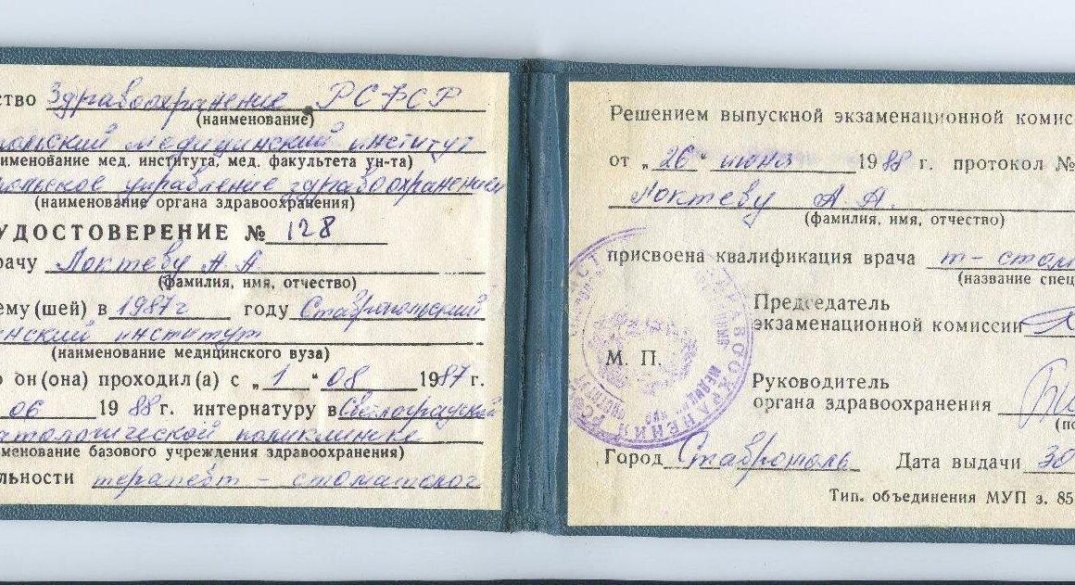 ство Здравоохранение РСФСР
(наименование)
польский медицинский институт
именование мед. института, мед. факультета ун-та)
польское управление здравоохранением
(наименование органа здравоохранения)
УДОСТОВЕРЕНИЕ № 128
рачу Локтеву А А
(фамилия, имя, отчество)
ему (шей) в 1987г году Ставропольский
инский институт
(наименование медицинского вуза)
о он(она) проходил(а) с „1" 08 1987 г.
06 1988 г. интернатуру в Светлоградской
атологической поликлинике
именование базового учреждения здравоохранения)
льности терапевт - стоматолог
Решением выпускной экзаменационной комис
от „26" июня 1988 г. протокол №
Локтеву А. А.
(фамилия, имя, отчество)
присвоена квалификация врача т- стом
(название спец
Председатель
экзаменационной комиссии
М. П.
Руководитель
органа здравоохранения
(по
Город Ставрополь Дата выдачи 30
Тип. объединения МУП з. 85